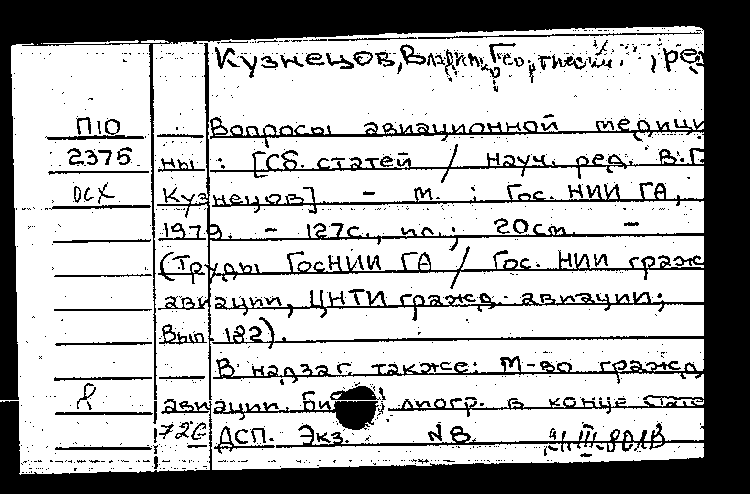 Кузнецов, Владим. Георгиевич, ред
П10
Вопросы авиационной медици
2375
ны : [Сб. статей / Науч. ред. В.Г
осх
Кузнецов]. - М. : Гос. НИИ ГА,
1979. - 127с., ил.; 20см. -
(Труды ГосНИИ ГА / Гос. НИИ гражд
авиации, ЦНТИ гражд. авиации;
Вып. 182).
В надзаг. также: М-во гражд
авиации. Библиогр. в конце стате
ДСП. Экз. N В 21.III.80